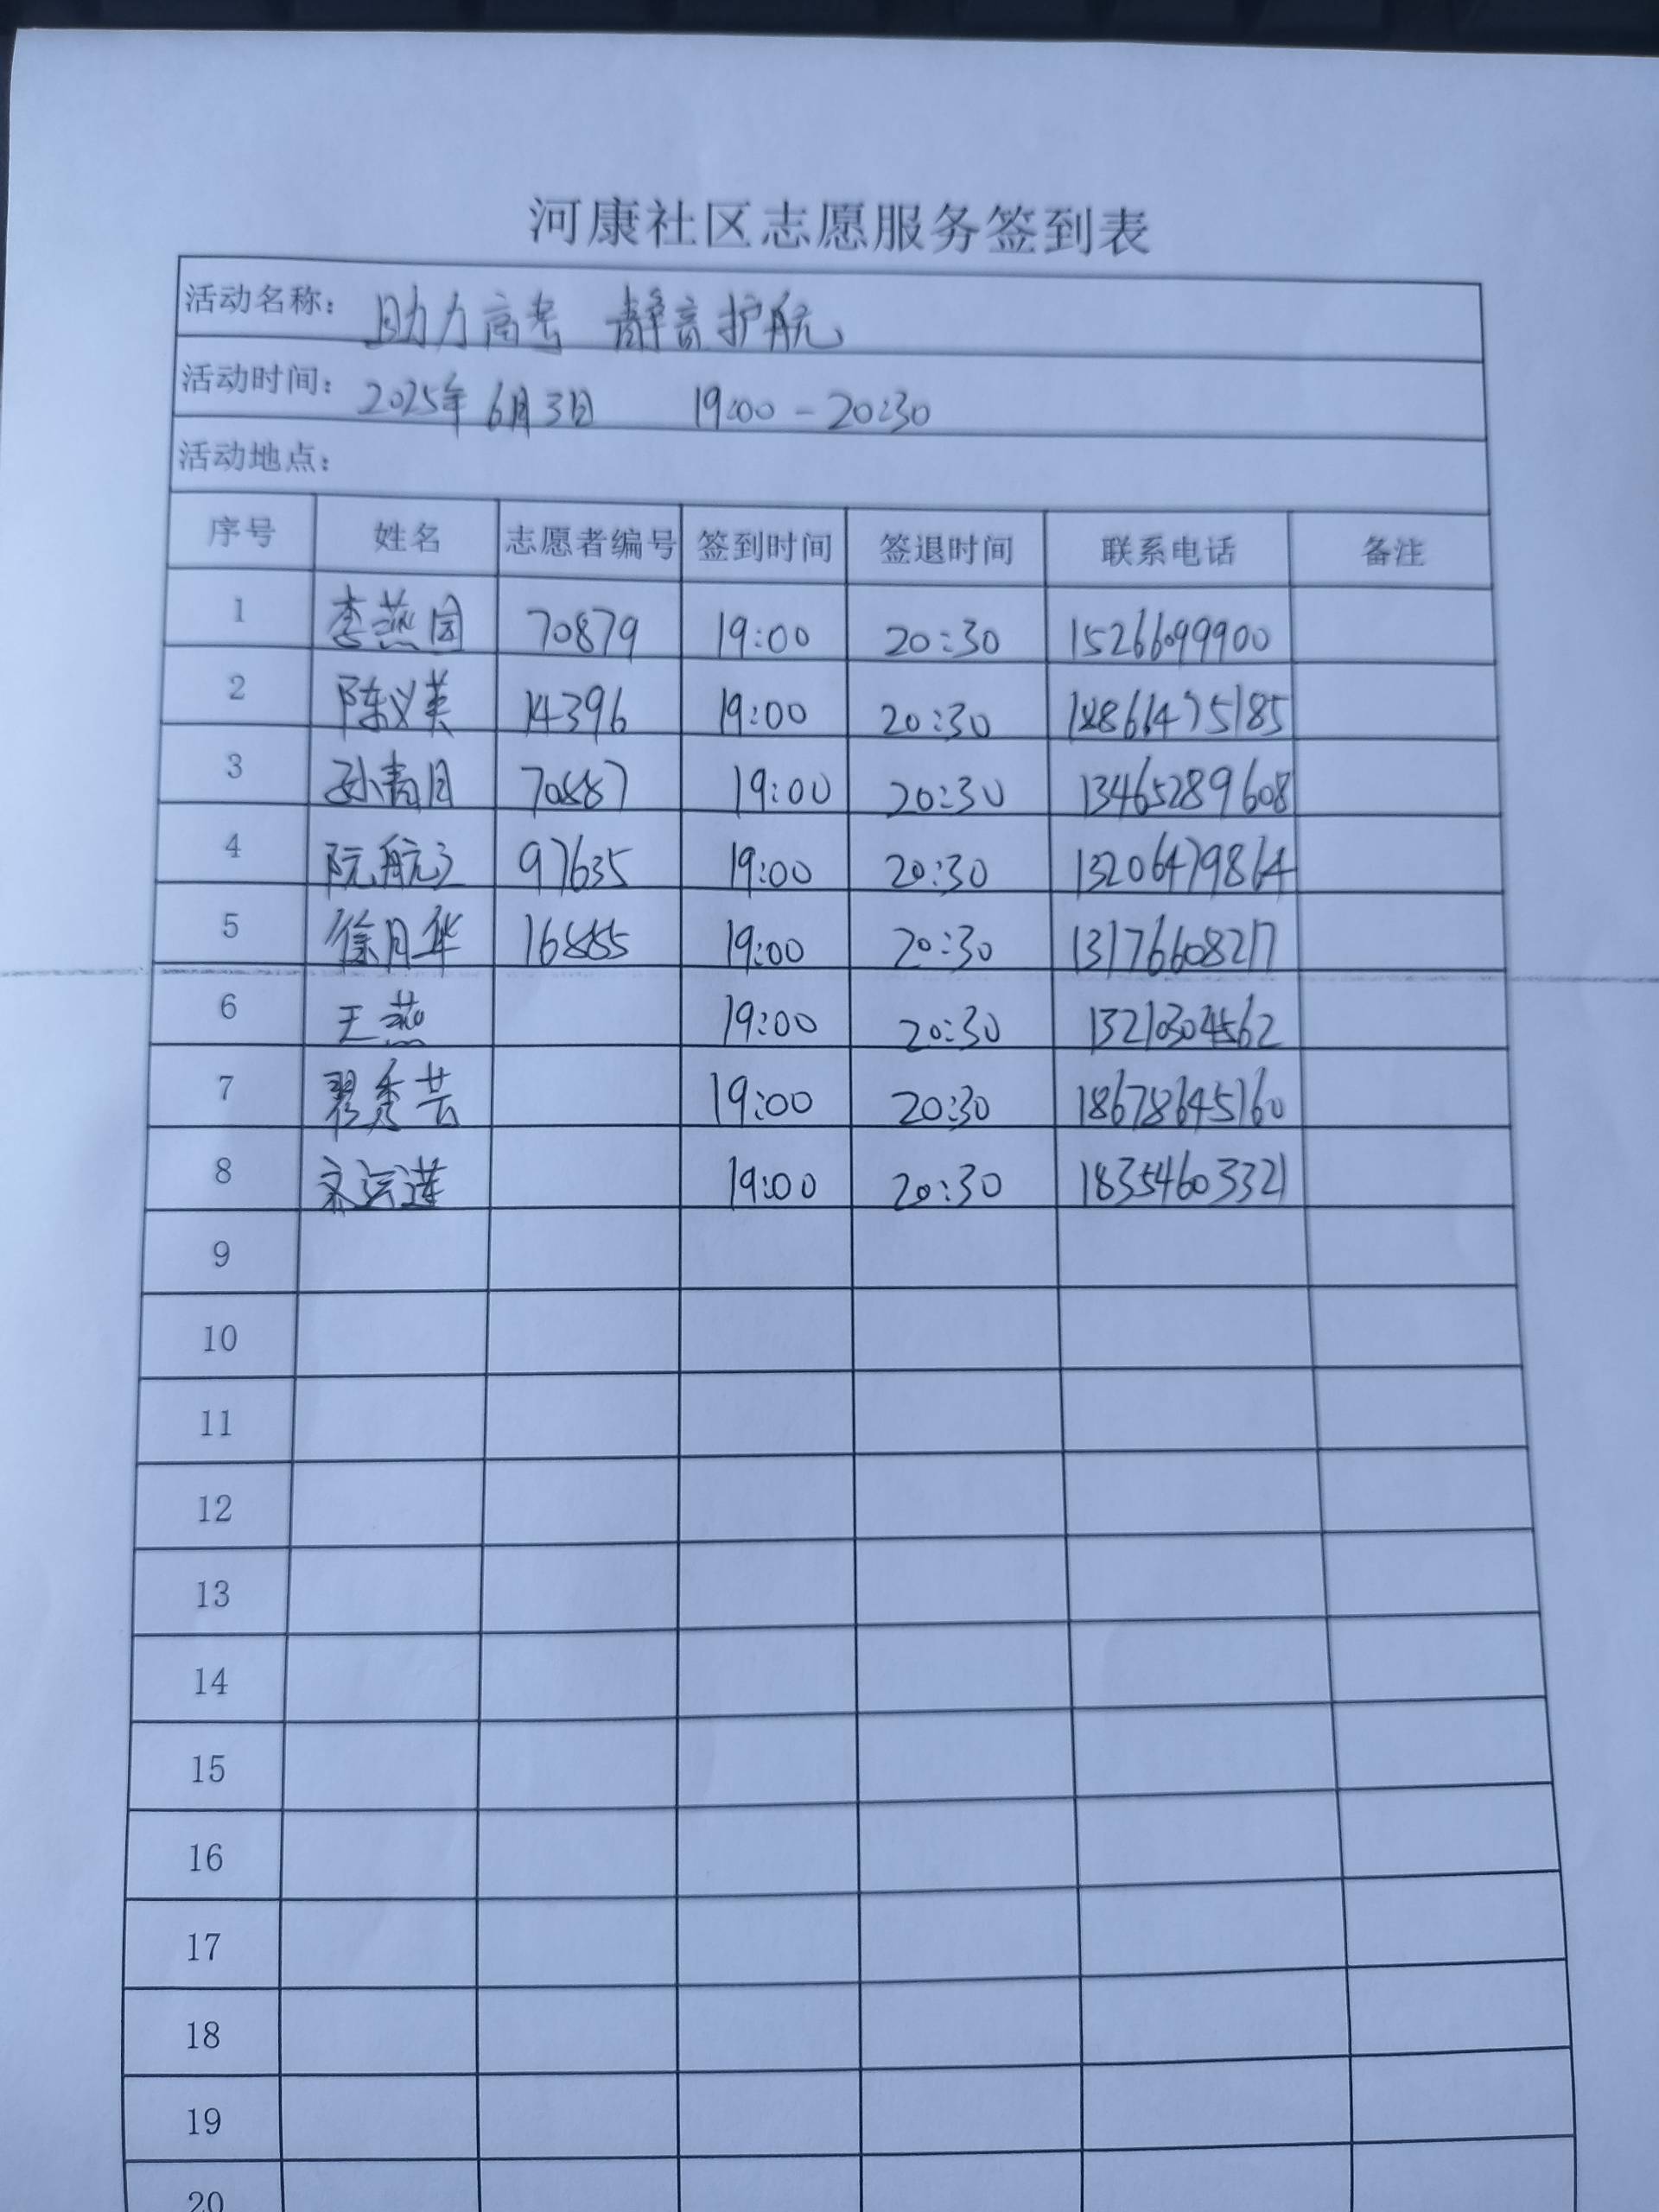 河康社区志愿服务签到表
活动名称： 助力高考 静音护航
活动时间： 2025年6月3日 19:00-20:30
活动地点：
序号 姓名 志愿者编号 签到时间 签退时间 联系电话 备注
1 李燕园 70879 19:00 20:30 15266099900
2 陈义美 14396 19:00 20:30 18861475185
3 孙青月 70887 19:00 20:30 13465289608
4 阮航之 97635 19:00 20:30 13206479864
5 徐月华 16885 19:00 20:30 13176608217
6 王燕 19:00 20:30 13210304562
7 翟秀芸 19:00 20:30 18678645160
8 运莲 19:00 20:30 18354603321
9
10
11
12
13
14
15
16
17
18
19
20